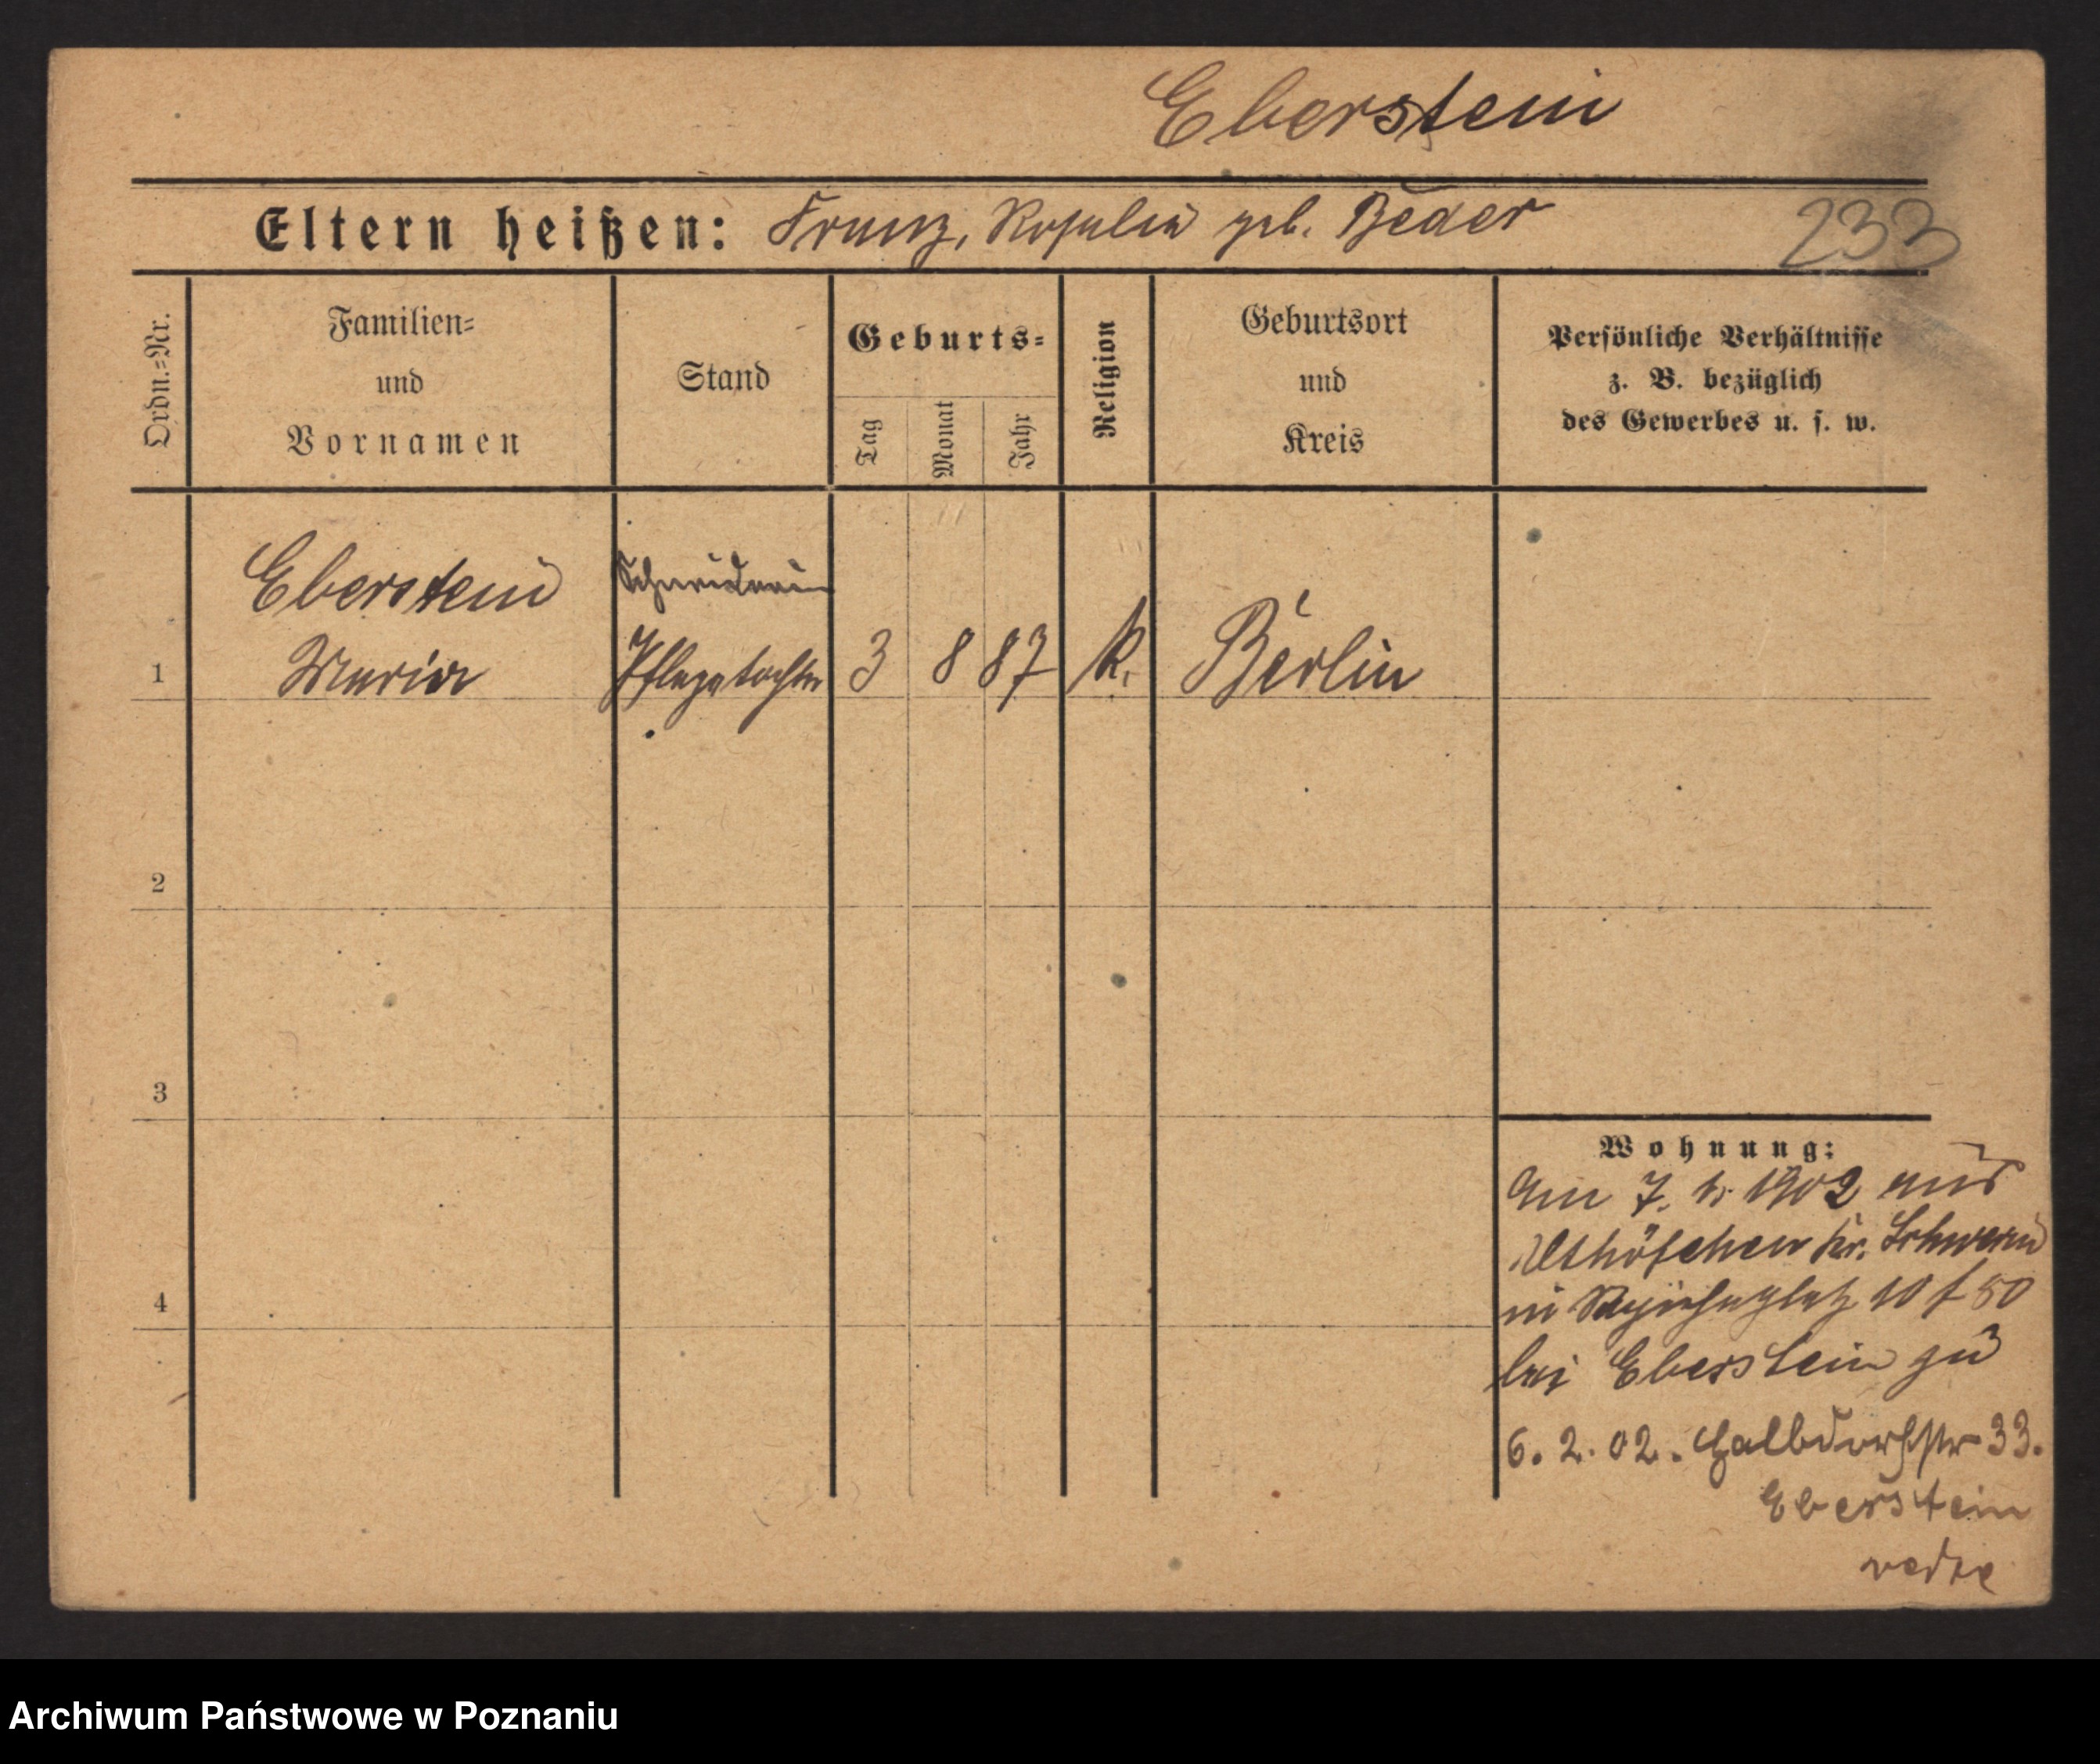 Eberstein
Eltern heißen: Franz, Rosalia geb. Beder
233
Ordn.=Nr.
Familien=
und
Vornamen
Stand
Geburts=
Tag
Monat
Jahr
Religion
Geburtsort
und
Kreis
Persönliche Verhältnisse
z. B. bezüglich
des Gewerbes u. s. w.
Eberstein Schneiderin
1 Maria Pflegetochter 3 8 87 K. Berlin
2
3
4
Wohnung:
Am 7. 1. 1902 aus
Althöfchen Kr. Schwerin
in 10 f 50
bei Eberstein zu
6. 2. 02. Halbdorfstr 33.
Eberstein
Archiwum Państwowe w Poznaniu